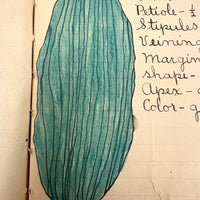 Petiole - ½
Stipules
Veining
Margin
Shape -
Apex -
Color - g